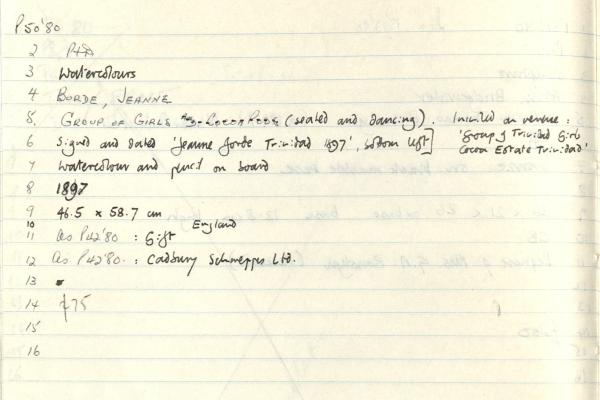 P50'80
2 P+D
3 Watercolours
4 BORDE, JEANNE
5. GROUP OF GIRLS (seated and dancing). Inscribed on reverse:
6 Signed and dated 'Jeanne Borde Trinidad 1897', bottom left] 'Group of Trinidad Girls
Cocoa Estate Trinidad'
7 Watercolour and pencil on board
8 1897
9 46.5 x 58.7 cm
10 England
11 as P42'80 : Gift
12 as P42'80. : Cadbury Schweppes Ltd.
13
14 £75
15
16